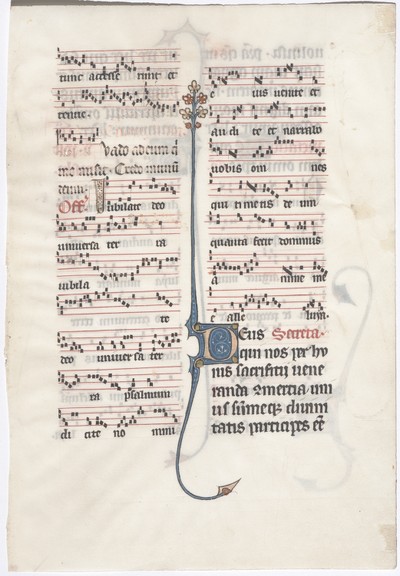 tunc accesse runt et
tenue
Vado ad eum q
me misit Credo mini
tenui
Off. Iubilate deo
universa ter ra
iubila
te
deo univer sa ter
ra psalmum
di cite no mini
e ius venite et
audi te et narrabo
vobis om nes
qui timetis de um
quanta fecit dominus
a nime me
e alle luya.
Deus Sacra.
qui nos per hu
ius sacrificii vene
randa omertia un
us sumeq divini
tatis participes